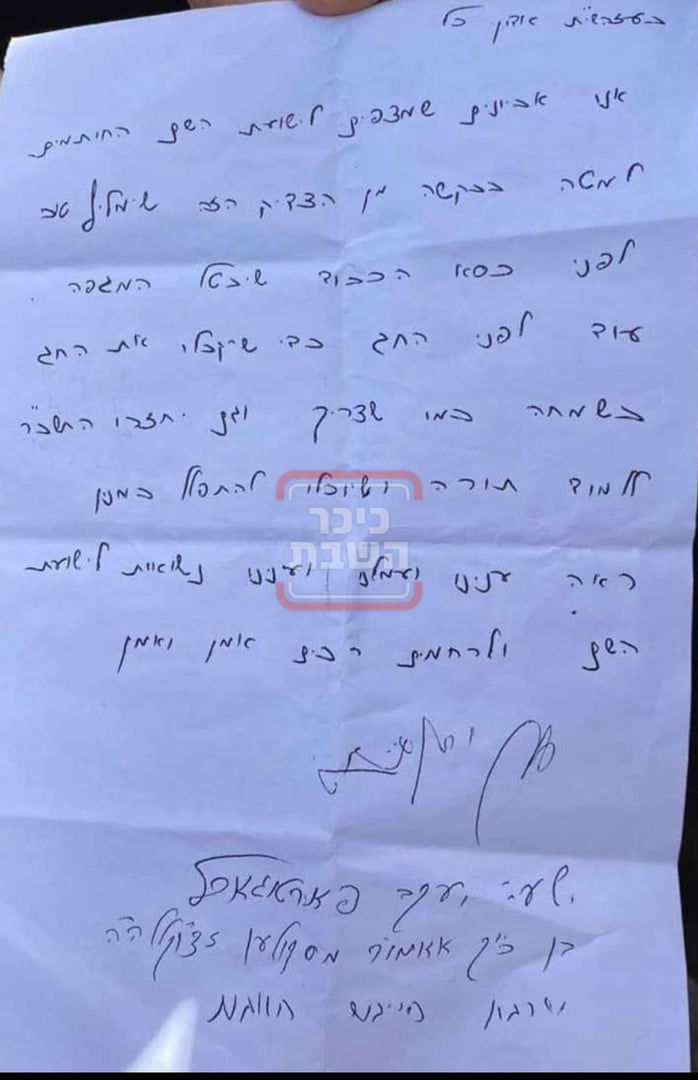 בעזהשי"ת אדון כל
אנו אביונים שמצפים לישועת השם החותמים
למטה בבקשה מן הצדיק הזה שימליץ טוב
לפני כסא הכבוד שיבטל המגפה .
עוד לפני החג כדי שיקבלו את החג
בשמחה כמו שצריך וגם יחזרו התשב"ר
ללמוד תורה ושיוכלו להתפלל במנין
כיכר
השבת
ראה ענינו ועמלנו נשואיות לישועת
השם ולרחמים רבים אומן ואמן
ישעי' יעקב פארטוגאל
בן כ"ק אאמו"ר מסקולען